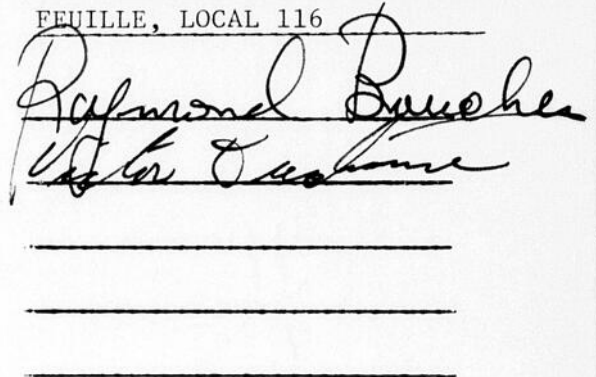 FEUILLE, LOCAL 116
Raymond Boucher
Victor